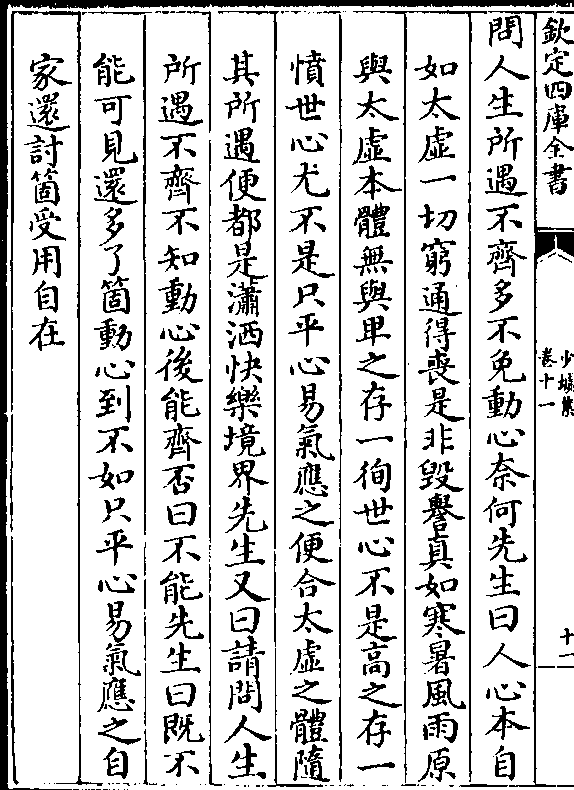 欽定四庫全書
少墟集
卷十一
十一
問人生所遇不齊多不免動心奈何先生曰人心本自
如太虛一切窮通得喪是非毀譽真如寒暑風雨原
與太虛本體無與卑之存一徇世心不是高之存一
憤世心尤不是只平心易氣應之便合太虛之體隨
其所遇便都是瀟洒快樂境界先生又曰請問人生
所遇不齊不知動心後能齊否曰不能先生曰既不
能可見還多了箇動心到不如只平心易氣應之自
家還討箇受用自在